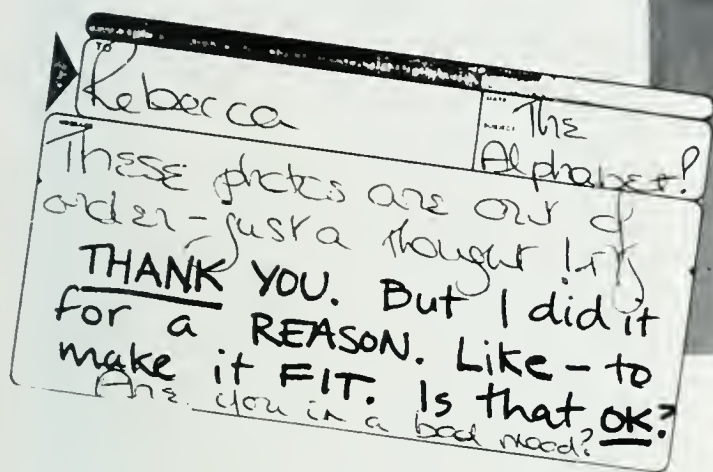 TO
Rebecca
The
Alphabet?
These photos are out of
order - just a thought!
THANK YOU. But I did it
for a REASON. Like - to
make it FIT. Is that OK?
Are you in a bad mood?